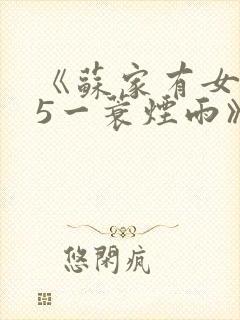 《蘇家有女
5一蓑煙雨》
悠閑瘋